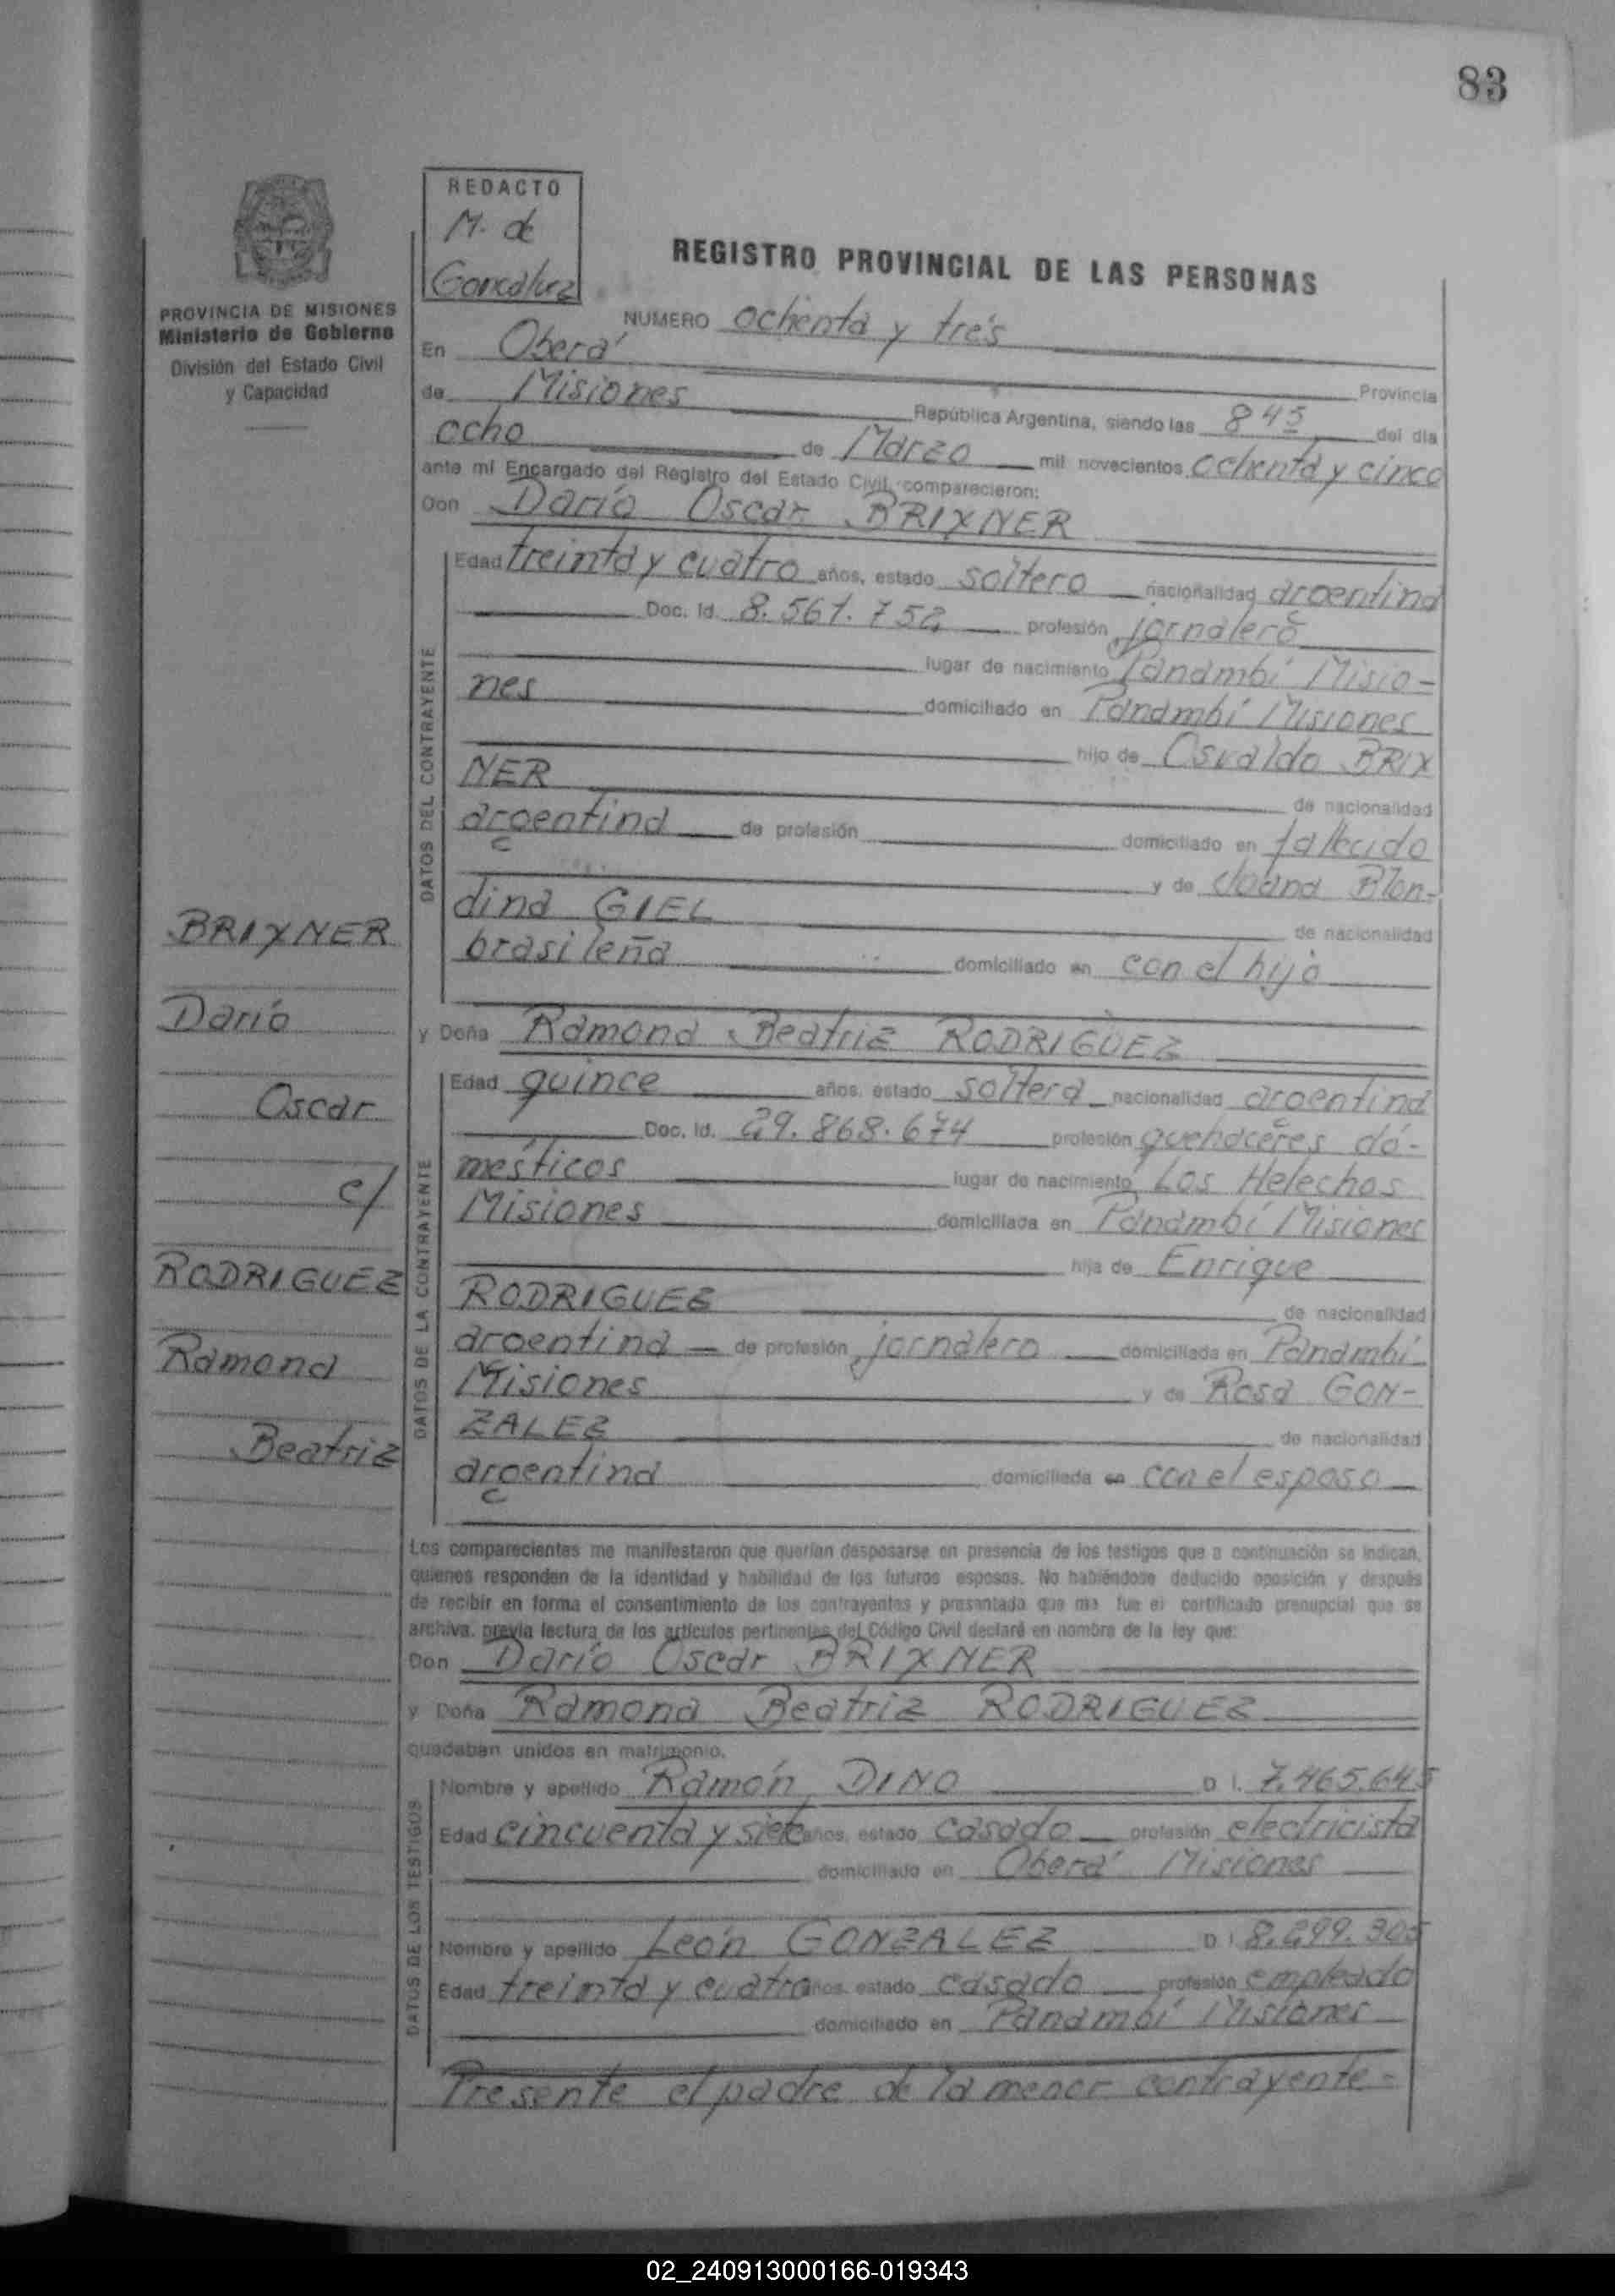 83
REDACTO
M. de
Goncalvez
REGISTRO PROVINCIAL DE LAS PERSONAS
PROVINCIA DE MISIONES
Ministerio de Gobierno
División del Estado Civil
y Capacidad
NUMERO ochenta y trés
En Oberá Provincia
de Misiones República Argentina, siendo las 8 45 del día
ocho de Marzo mil novecientos ochenta y cinco
ante mí Encargado del Registro del Estado Civil, comparecieron:
Don Darío Oscar BRIXNER
DATOS DEL CONTRAYENTE
Edad treinta y cuatro años, estado soltero nacionalidad argentina
Doc. Id. 8.561.752 profesión jornalero
lugar de nacimiento Panambí Misio-
nes domiciliado en Panambí Misiones
hijo de Osvaldo BRIX
NER de nacionalidad
argentina de profesión domiciliado en fallecido
y de Joana Blon-
dina GIEL de nacionalidad
brasileña domiciliado en con el hijo
BRIXNER
Darío
Oscar
c/
RODRIGUEZ
Ramona
Beatriz
y Doña Ramona Beatriz RODRIGUEZ
DATOS DE LA CONTRAYENTE
Edad quince años, estado soltera nacionalidad argentina
Doc. Id. 29.868.674 profesión quehaceres do-
mésticos lugar de nacimiento Los Helechos
Misiones domiciliada en Panambí Misiones
hija de Enrique
RODRIGUEZ de nacionalidad
argentina de profesión jornalero domiciliada en Panambí
Misiones y de Rosa GON-
ZALEZ de nacionalidad
argentina domiciliada en con el esposo
Los comparecientes me manifestaron que querían desposarse en presencia de los testigos que a continuación se indican,
quienes responden de la identidad y habilidad de los futuros esposos. No habiéndose deducido oposición y después
de recibir en forma el consentimiento de los contrayentes y presentada que me fue el certificado prenupcial que se
archiva, previa lectura de los artículos pertinentes del Código Civil declaré en nombre de la ley que:
Don Darío Oscar BRIXNER
y Doña Ramona Beatriz RODRIGUEZ
quedaban unidos en matrimonio.
DATOS DE LOS TESTIGOS
Nombre y apellido Ramón DINO D I. 7.465.645
Edad cincuenta y siete años, estado casado profesión electricista
domiciliado en Oberá Misiones
Nombre y apellido León GONZALEZ D I 8.299.305
Edad treinta y cuatro años, estado casado profesión empleado
domiciliado en Panambí Misiones
Presente el padre de la menor contrayente=
02_240913000166-019343